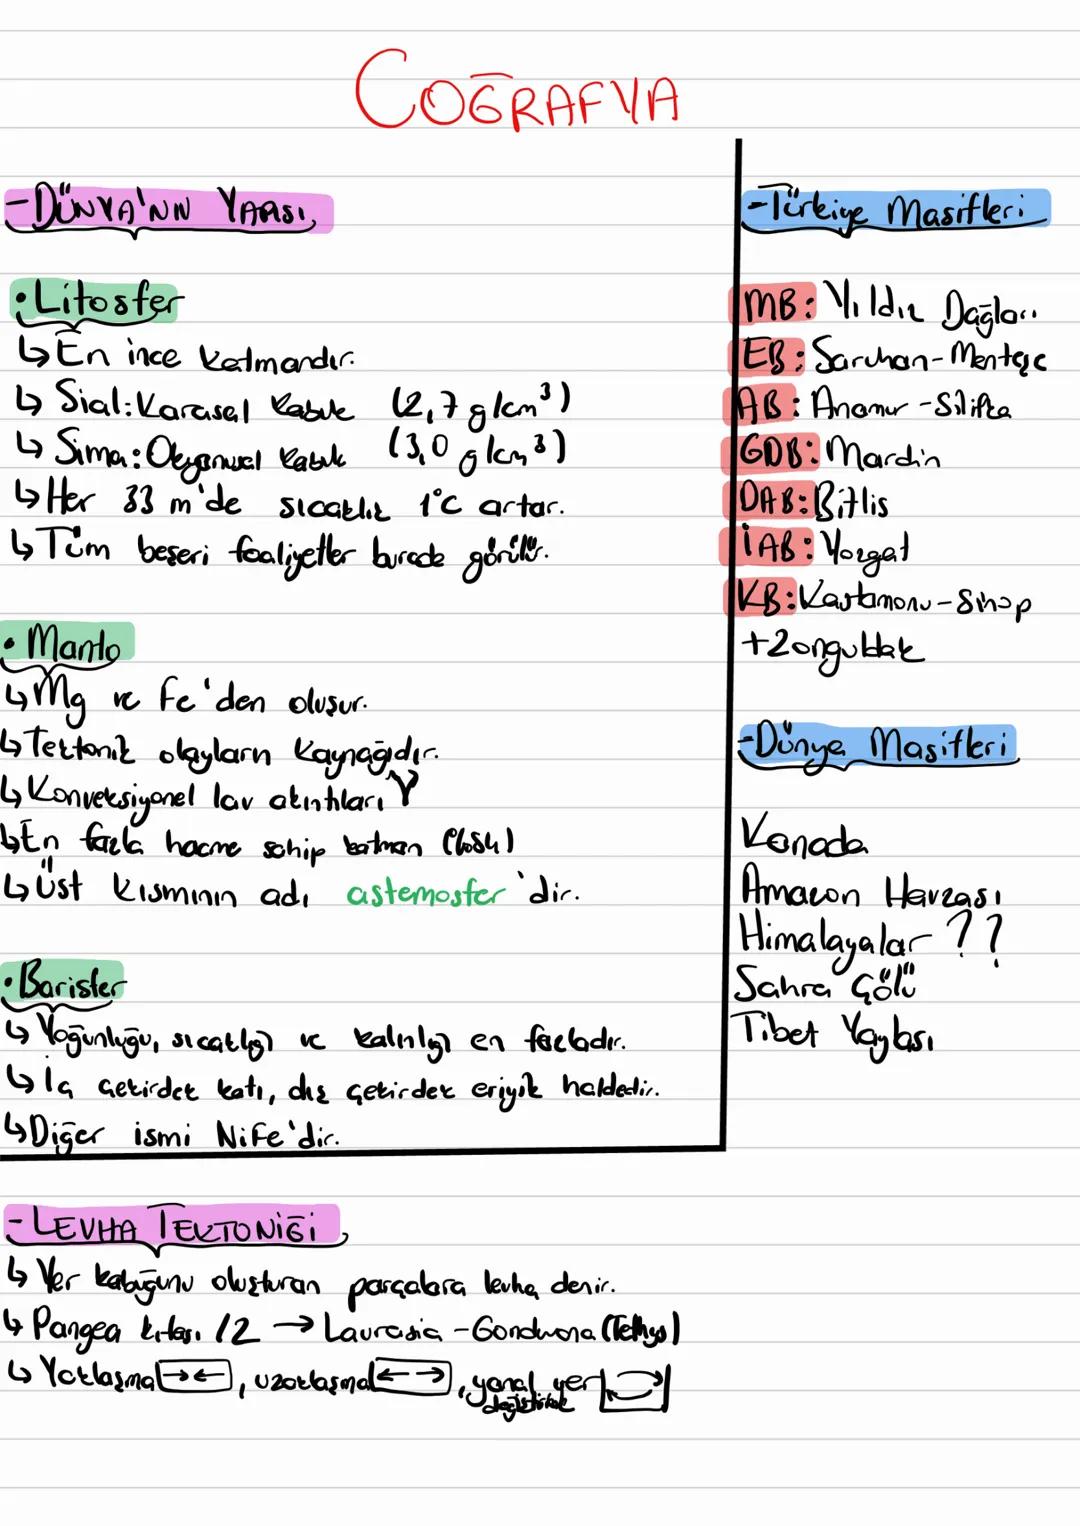 COĞRAFYA
-DÜNYA'NIN YAPISI
• Litosfer
↳ En ince katmandır.
↳ Sial: Karasal kabuk (2,7 g/cm³)
↳ Sima: Okyanusal kabuk (3,0 g/cm³)
↳ Her 33 m'de sıcaklık 1°C artar.
↳ Tüm beşeri faaliyetler burada görülür.
• Manto
↳ Mg ve Fe'den oluşur.
↳ Tektonik olayların kaynağıdır.
↳ Konveksiyonel lav akıntıları
↳ En fazla hacme sahip katman (%84)
↳ Üst kısmının adı astemosfer'dir.
• Barisfer
↳ Yoğunluğu, sıcaklığı ve kalınlığı en fazladır.
↳ İç çekirdek katı, dış çekirdek eriyik haldedir.
↳ Diğer ismi NiFe'dir.
-Türkiye Masifleri
MB: Yıldız Dağları
EB: Saruhan-Menteşe
AB: Anamur-Silifke
GDB: Mardin
DAB: Bitlis
İAB: Yozgat
KB: Kastamonu-Sinop
+Zonguldak
-Dünya Masifleri
Kanada
Amazon Havzası
Himalayalar ??
Sahra Çölü
Tibet Yaylası
-LEVHA TEKTONİĞİ
↳ Yer kabuğunu oluşturan parçalara levha denir.
↳ Pangea kıtası /2 → Laurasia-Gondwana (Tethys)
↳ Yaklaşma →←, uzaklaşma ←→, yanal yer
değiştirme